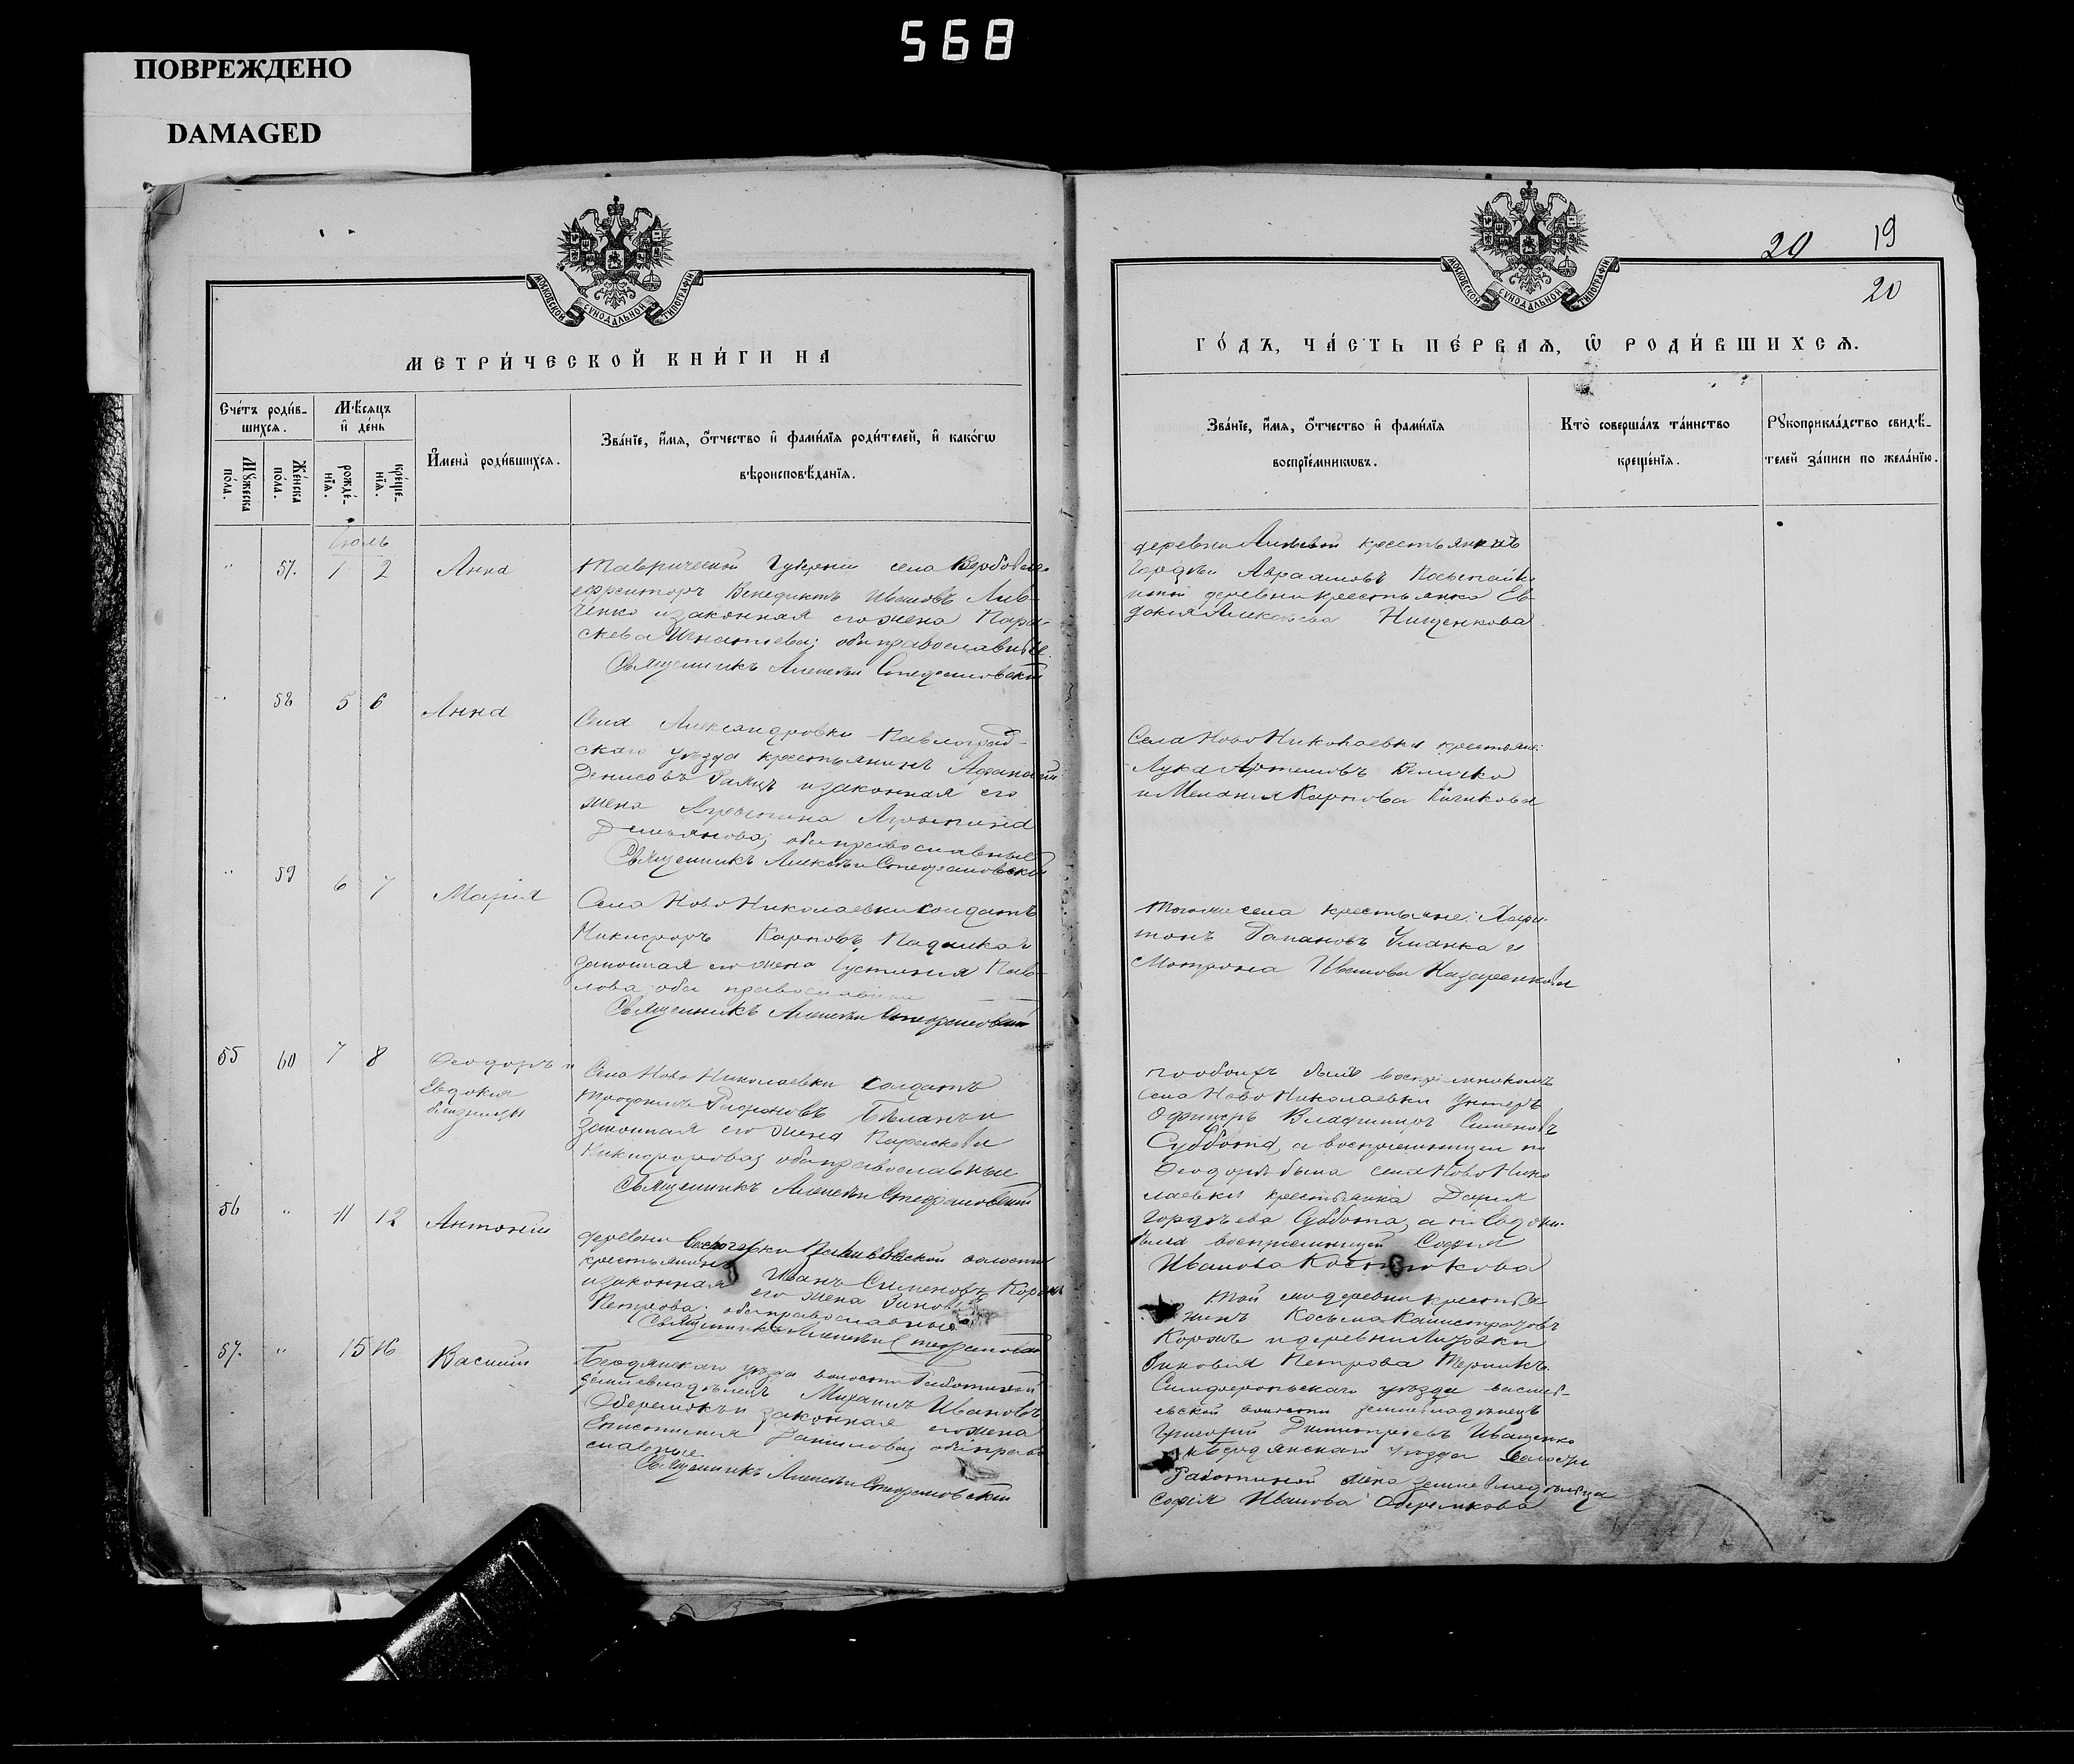 568
ПОВРЕЖДЕНО
DAMAGED
МОСКОВСКОЙ СѴНОДАЛЬНОЙ ТИПОГРАФІИ
МЕТРИ́ЧЕСКОЙ КНИ́ГИ НА
Сче́тъ роди́в-
шихся.
Мѣ́сяцъ
и҆ де́нь
Мꙋ́жеска
по́ла.
Же́нска
по́ла.
рожде́-
нїя.
креще́-
нїя.
И҆мена̀ роди́вшихся.
Зва́нїе, и҆́мя, ѻ҆́тчество и҆ фами́лїя роди́телей, и҆ како́гѡ
вѣроисповѣ́данїя.
Іюль
" 57. 1 2 Анна
Таврической Губерніи села
ефрейторъ Венедиктъ Ивановъ Лив-
ченко и законная его жена Пара-
скева Игнатіева; оба православные.
Священникъ Алексѣй Стефановскій
" 58 5 6 Анна
Села Александровки Павлоград-
скаго уѣзда крестьянинъ Афанасій
Денисовъ и законная его
жена Агрипина Агрипина
Демьянова; оба православные
Священникъ Алексѣй Стефановскій
" 59 6 7 Марія
Села Ново Николаевки солдатъ
Никифоръ Карповъ
законная его жена Іустинія Пав-
лова оба православные
Священникъ Алексѣй Стефановскій
55 60 7 8 Ѳеодоръ и
Евдокія
близнецы
Села Ново Николаевки солдатъ
Трофимъ Бѣланъ и
законная его жена Параскева
Никифорова; оба православные
Священникъ Алексѣй Стефановскій
56 " 11 12 Антоній
деревни волости
крестьянинъ Иванъ Сименовъ
и законная его жена Зиновія
Петрова; оба православные
Священникъ Алексѣй Стефановскій
57. " 15 16 Василій
Бердянскаго уѣзда волости
землевладѣлецъ Михаилъ Ивановъ
Оберемокъ и законная его жена
Епистимія Данилова; оба право
славные
Священникъ Алексѣй Стефановскій
20 19
20
МОСКОВСКОЙ СѴНОДАЛЬНОЙ ТИПОГРАФІИ
ГО́ДЪ, ЧА́СТЬ ПЕ́РВАѦ, Ѿ РОДИ́ВШИХСѦ.
Зва́нїе, и҆́мя, ѻ҆́тчество и҆ фами́лїя
воспрїе́мникѡвъ.
Кто̀ соверша́лъ та́инство
креще́нїя.
Рꙋкоприкла́дство свидѣ́-
телей за́писи по жела́нїю.
деревни крестьянинъ
Гордѣй Авраамовъ
и той деревни крестьянка Ев-
докія Алексѣева Нищенкова
Села Ново Николаевки крестьяне:
Лука Артемовъ Величко
и Меланія Карпова
того же села крестьяне: Хари-
тонъ Уманка и
Мотрона Иванова Назаренкова
по обоихъ былъ воспріемникомъ
села Ново Николаевки унтеръ
офицеръ Владимиръ Сименовъ
Суббота, а воспріемницей по
Ѳеодорѣ была села Ново Нико
лаевки крестьянка Дарія
Гордѣева Суббота, а по Евдокіи
была воспріемницей Софія
Иванова Костюкова
той же деревни крестья
нинъ Косьма Калистратовъ
Коржъ и деревни
Зиновія Петрова
Симферопольскаго уѣзда василь-
евской волости землевладѣлецъ
Григорій Димитріевъ Иващенко
и Бердянскаго уѣзда волости
жена землевладѣльца
Софія Иванова Оберемкова